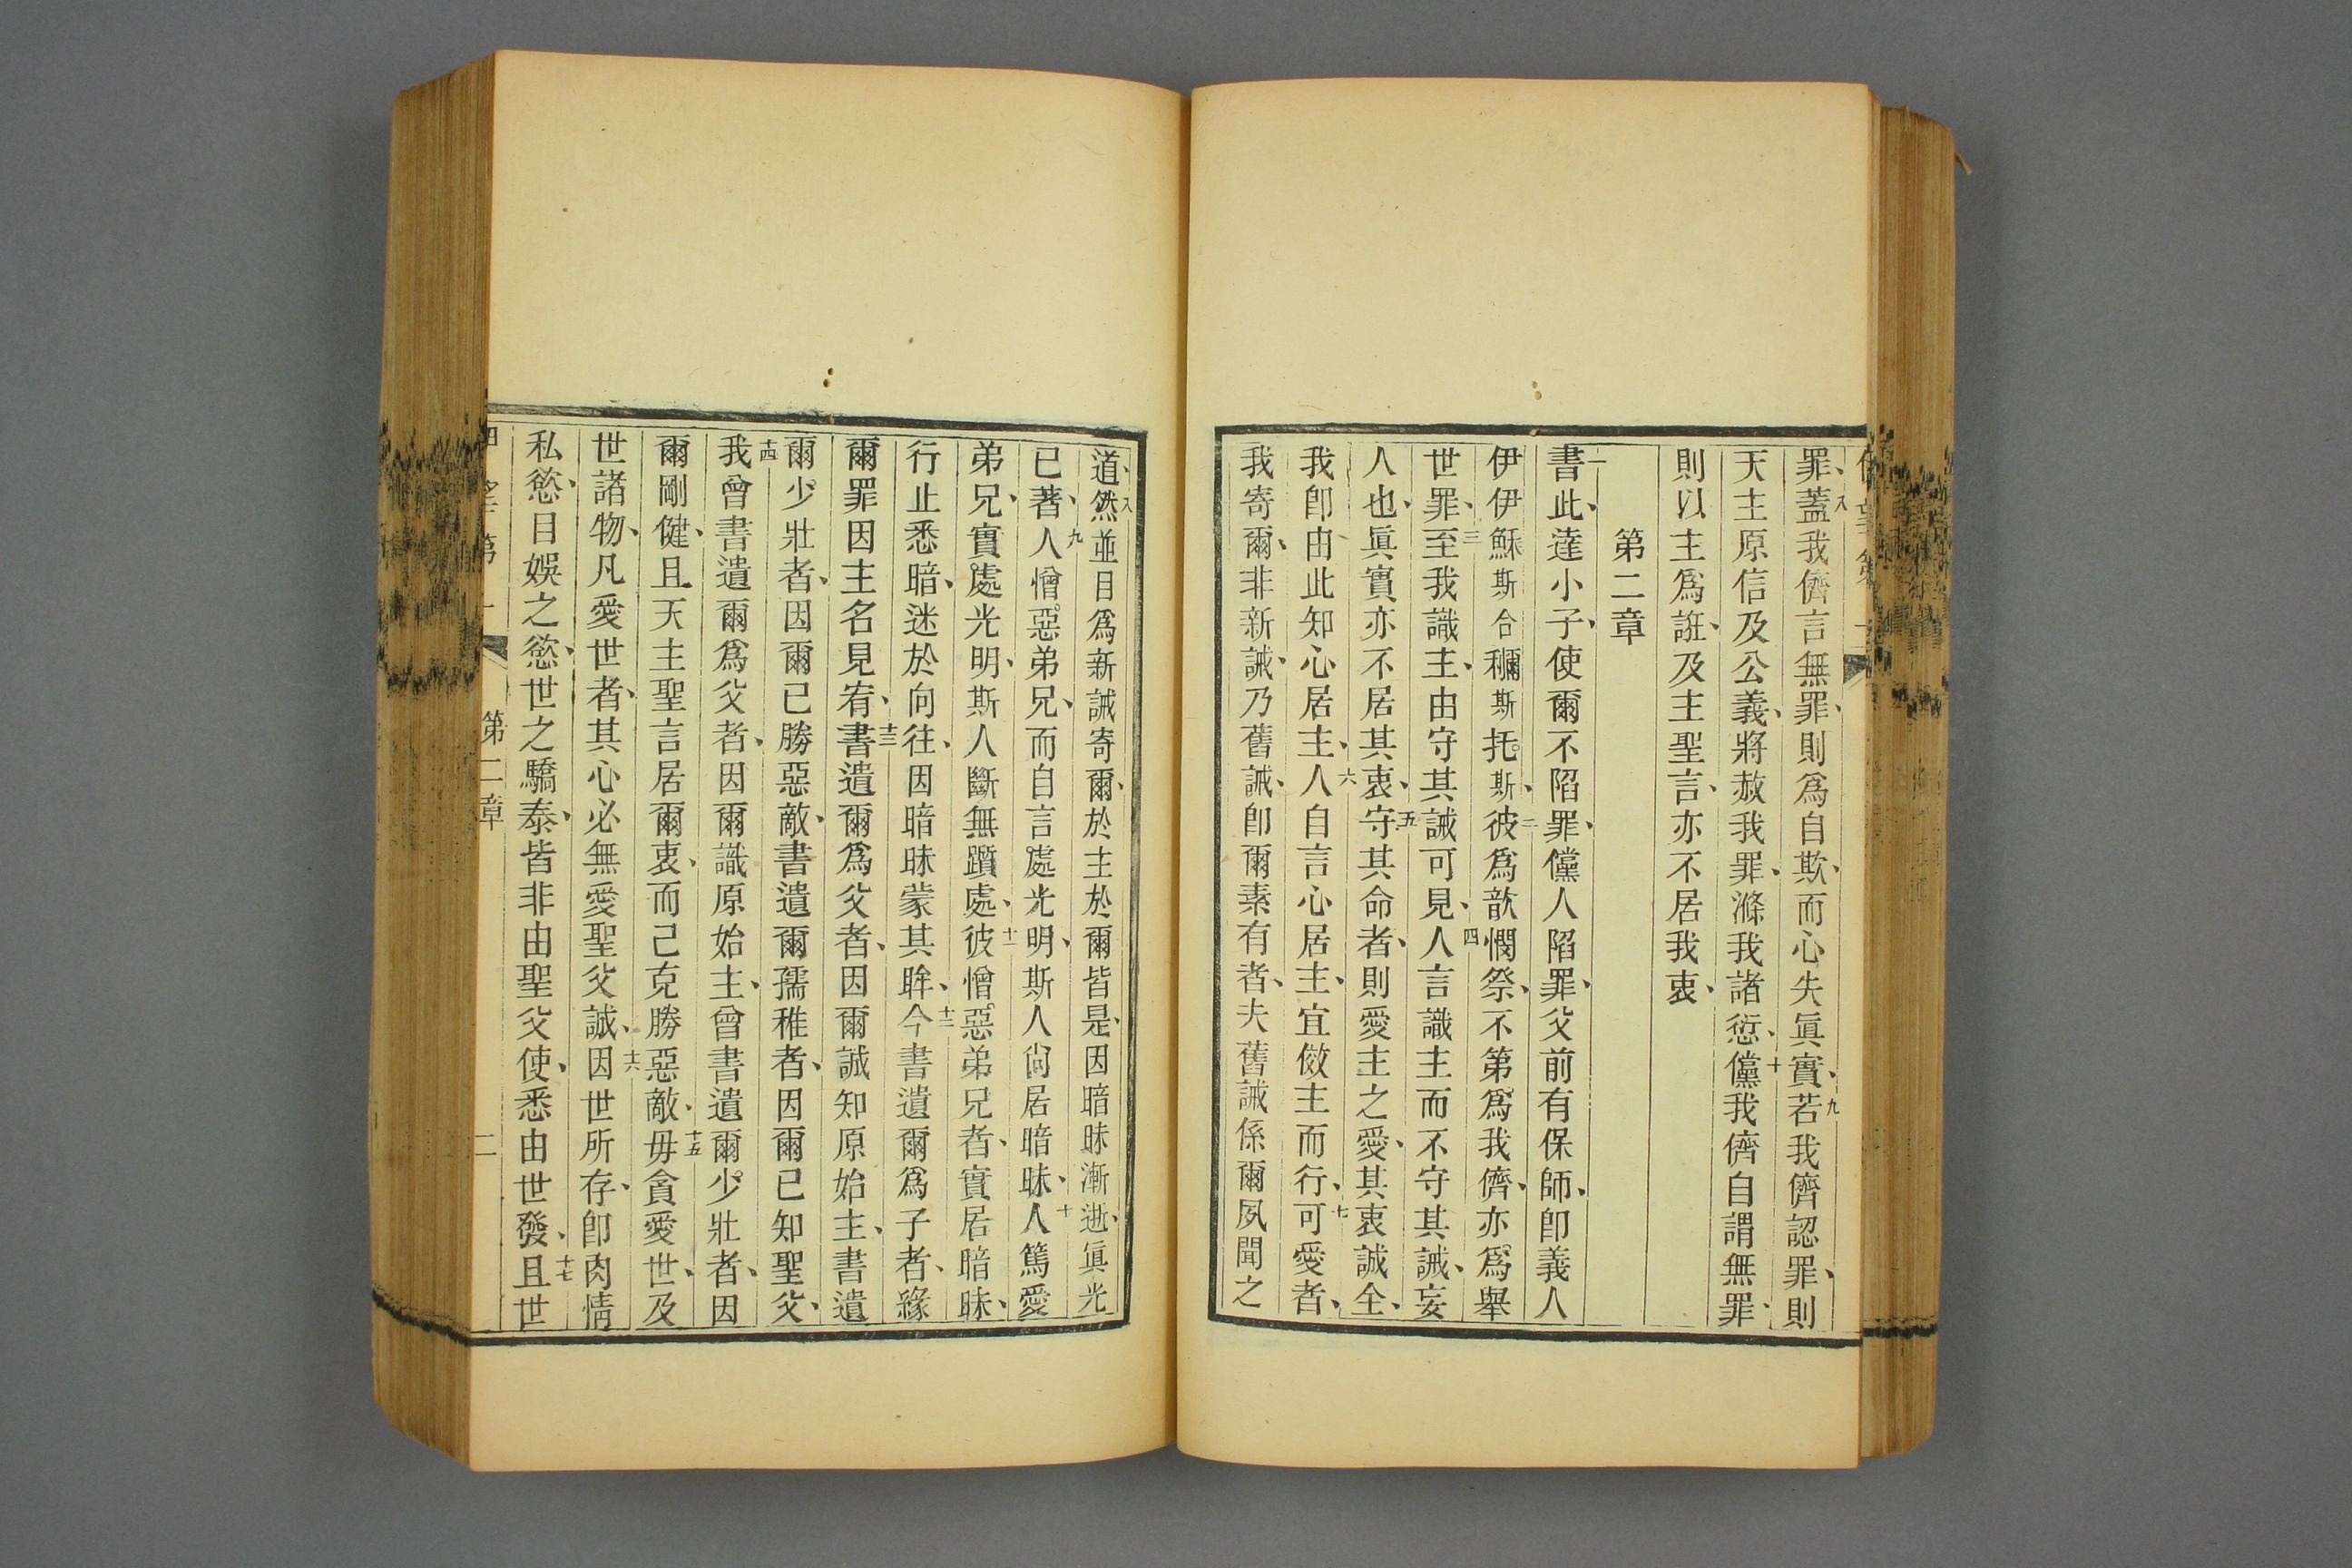 罪、八蓋我儕言無罪、則爲自欺、而心失眞實、九若我儕認罪、則
天主原信及公義、將赦我罪、滌我諸愆、十儻我儕自謂無罪、
則以主爲誑、及主聖言、亦不居我衷、
第二章
一書此、達小子、使爾不陷罪、儻人陷罪、父前有保師、卽義人
伊伊穌斯合穪斯托斯、二彼爲歆憫祭、不第爲我儕、亦爲舉
世罪、三至我識主、由守其誡可見、四人言識主而不守其誡、妄
人也、眞實亦不居其衷、五守其命者、則愛主之愛、其衷誠全、
我卽由此知心居主、六人自言心居主、宜傚主而行、七可愛者、
我寄爾、非新誡、乃舊誡、卽爾素有者、夫舊誡係爾夙聞之
道、八然並目爲新誡寄爾、於主於爾皆是、因暗昧漸逝、眞光
已著、九人憎惡弟兄、而自言處光明、斯人尙居暗昧、十人篤愛
弟兄、實處光明、斯人斷無躓處、十一彼憎惡弟兄者、實居暗昧、
行止悉暗、迷於向往、因暗昧蒙其眸、十二今書遺爾爲子者、緣
爾罪因主名見宥、十三書遺爾爲父者、因爾誠知原始主、書遺
爾少壯者、因爾已勝惡敵、書遺爾孺稚者、因爾已知聖父、
十四我曾書遺爾爲父者、因爾識原始主、曾書遺爾少壯者、因
爾剛健、且天主聖言居爾衷、而已克勝惡敵、十五毋貪愛世、及
世諸物、凡愛世者、其心必無愛聖父誠、十六因世所存、卽肉情
私慾、目娛之慾、世之驕泰、皆非由聖父使、悉由世發、十七且世
第二章
二